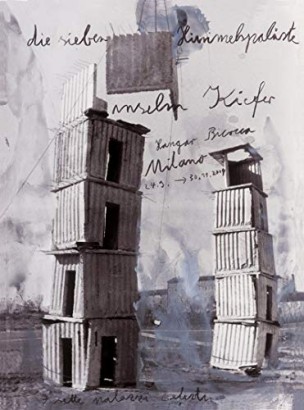 die sieben Himmelspaläste
Anselm Kiefer
Hangar Bicocca
Milano
I sette palazzi celesti